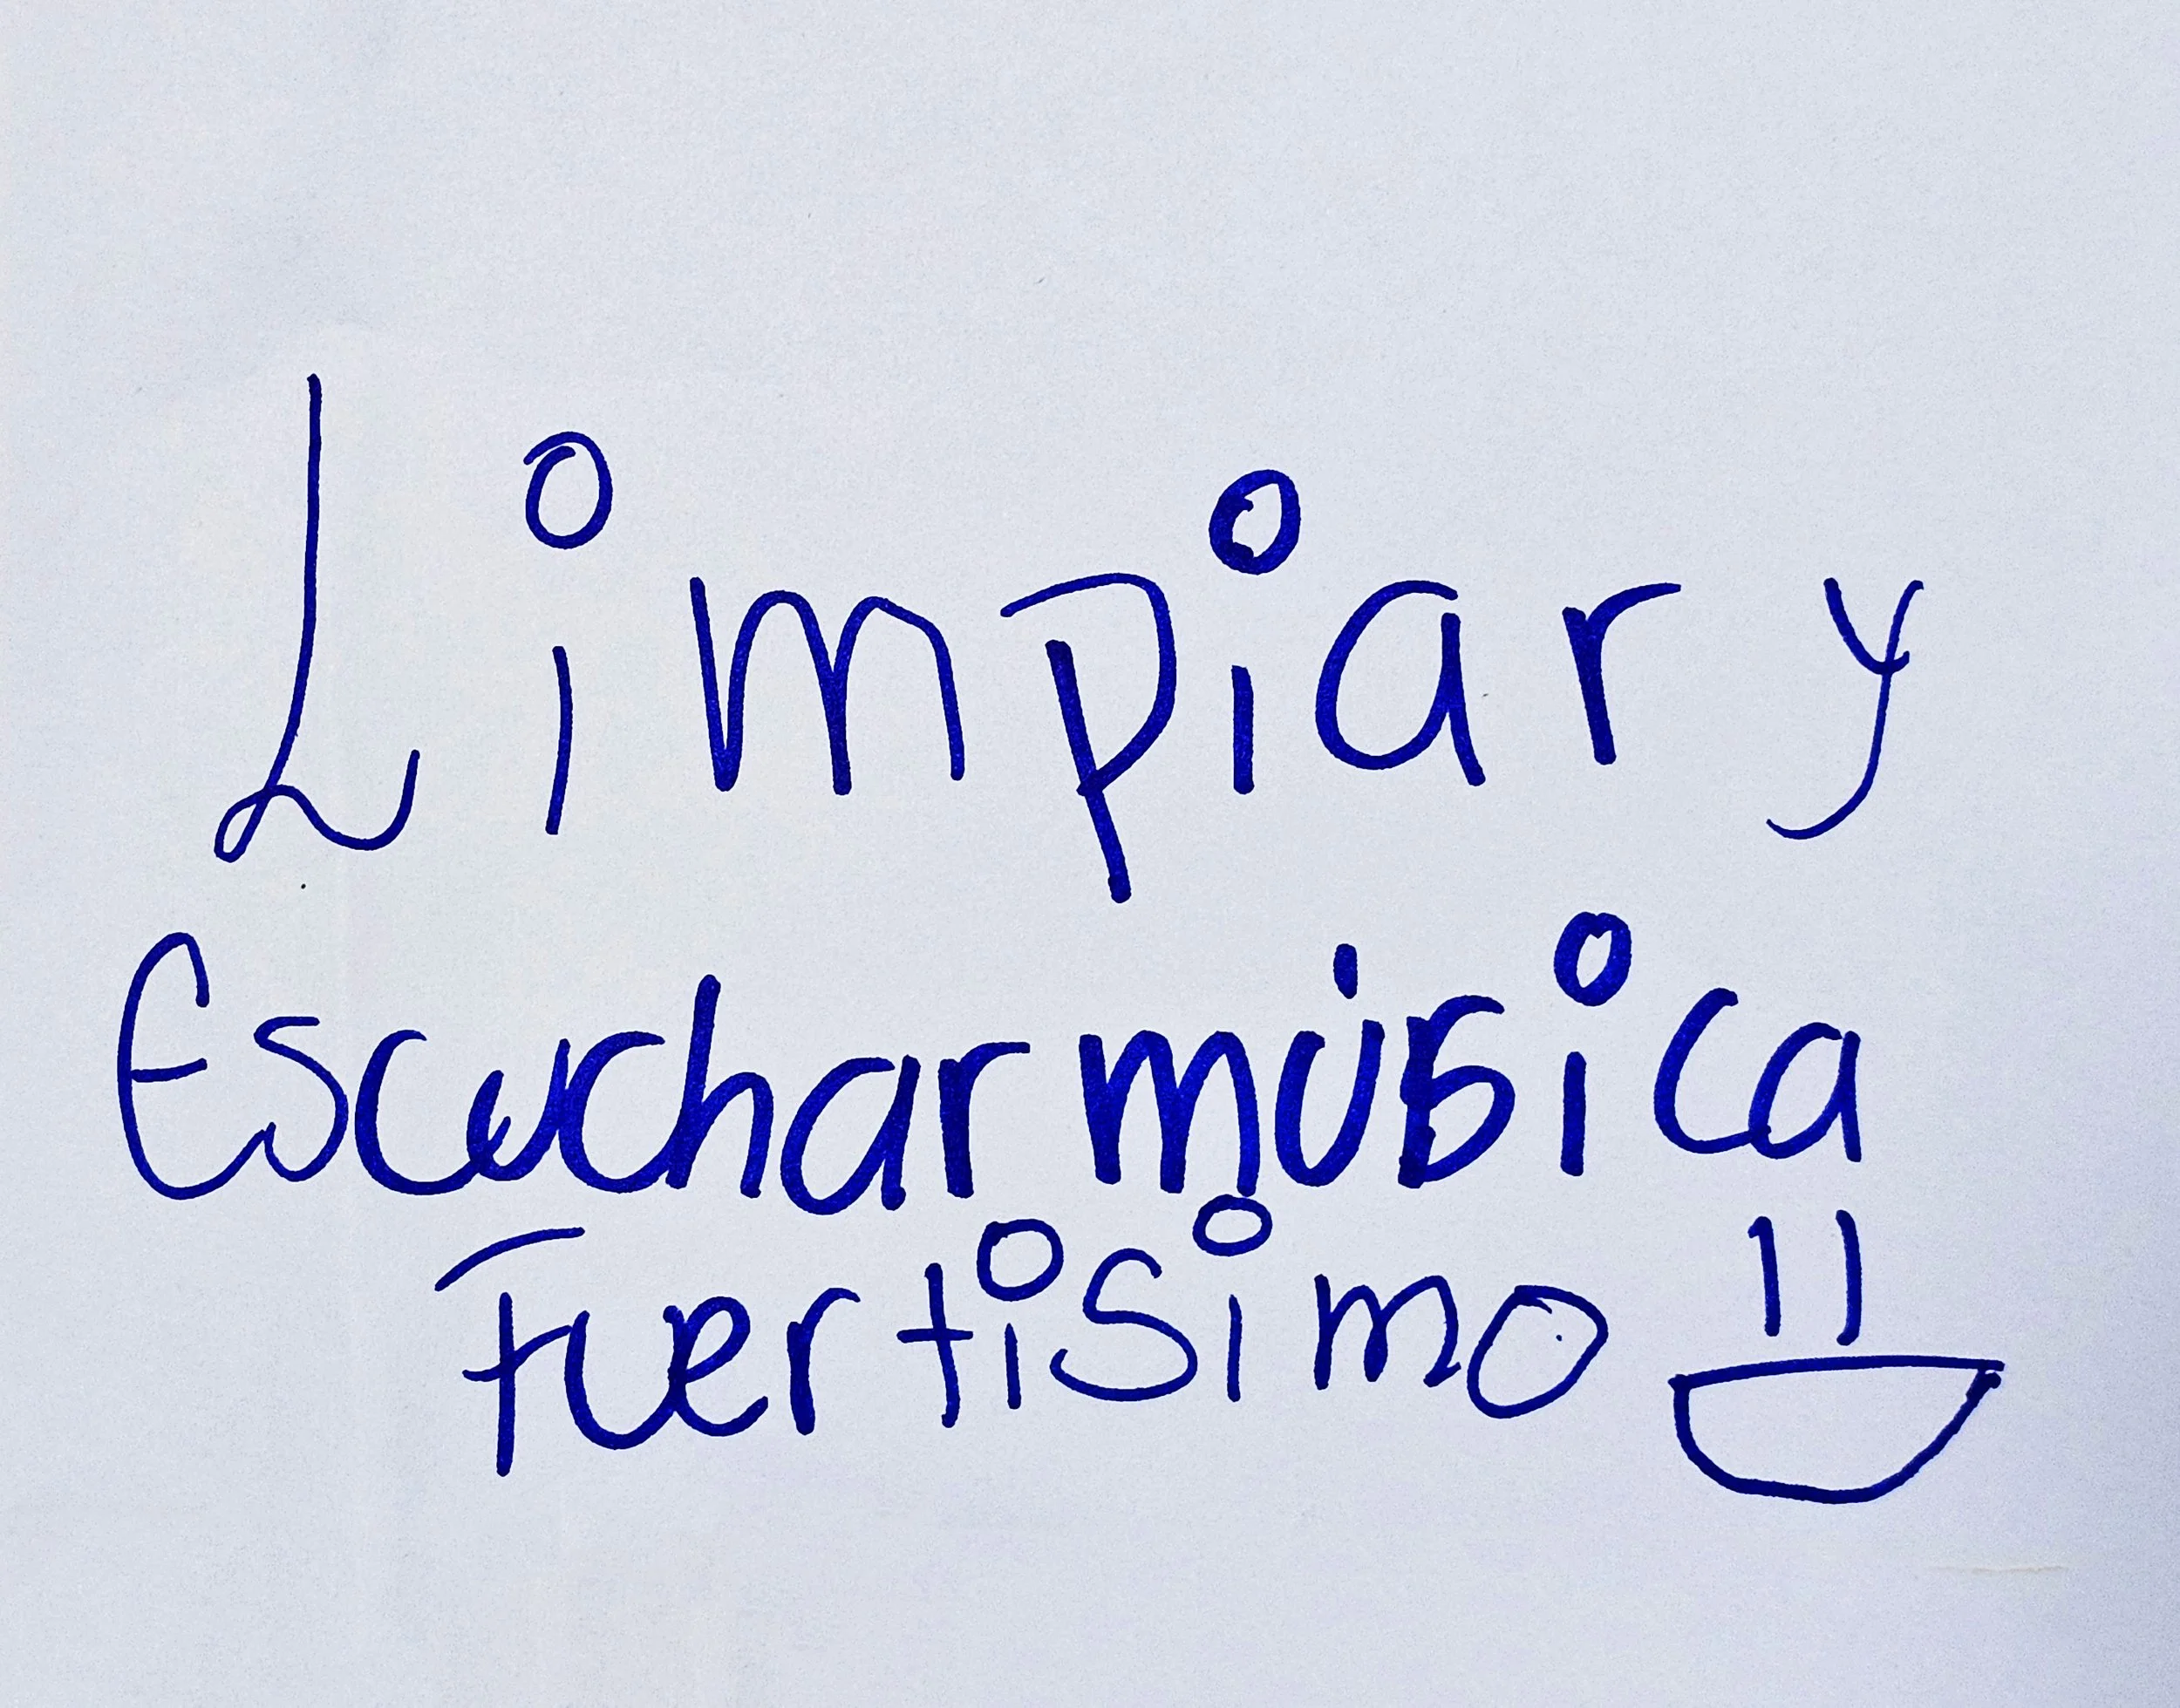 Limpiar y
Escuchar música
Fuertisimo